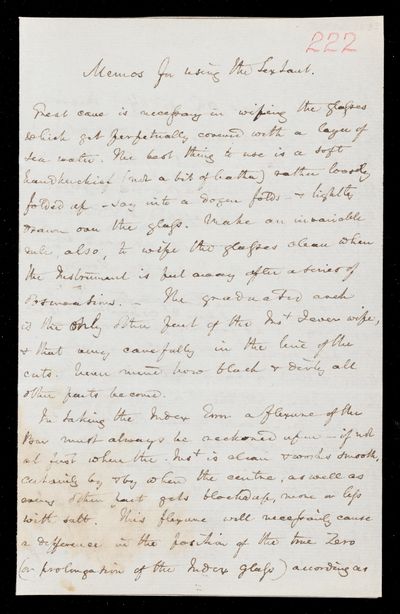 222
Memos for using the Sextant.
Great care is necessary in wiping the glasses
which get perpetually covered with a layer of
sea water. The best thing to use is a soft
handkerchief (not a bit of leather) rather loosely
folded up - say into a dozen folds - & lightly
drawn over the glass. Make an invariable
rule, also, to wipe the glasses clean when
the Instrument is put away after a series of
Observations. - The graduated arch
is the only other part of the Inst I ever wipe,
& that very carefully in the line of the
cuts. Never mind how black & dirty all
other parts become.
In taking the Index Error a flexure of the
Bar must always be reckoned upon - if not
at first when the Inst is clean & works smooth,
certainly by & by when the centre, as well as
every other part gets blocked up, more or less
with salt. This flexure will necessarily cause
a difference in the position of the true Zero
(or prolongation of the Index glass) according as